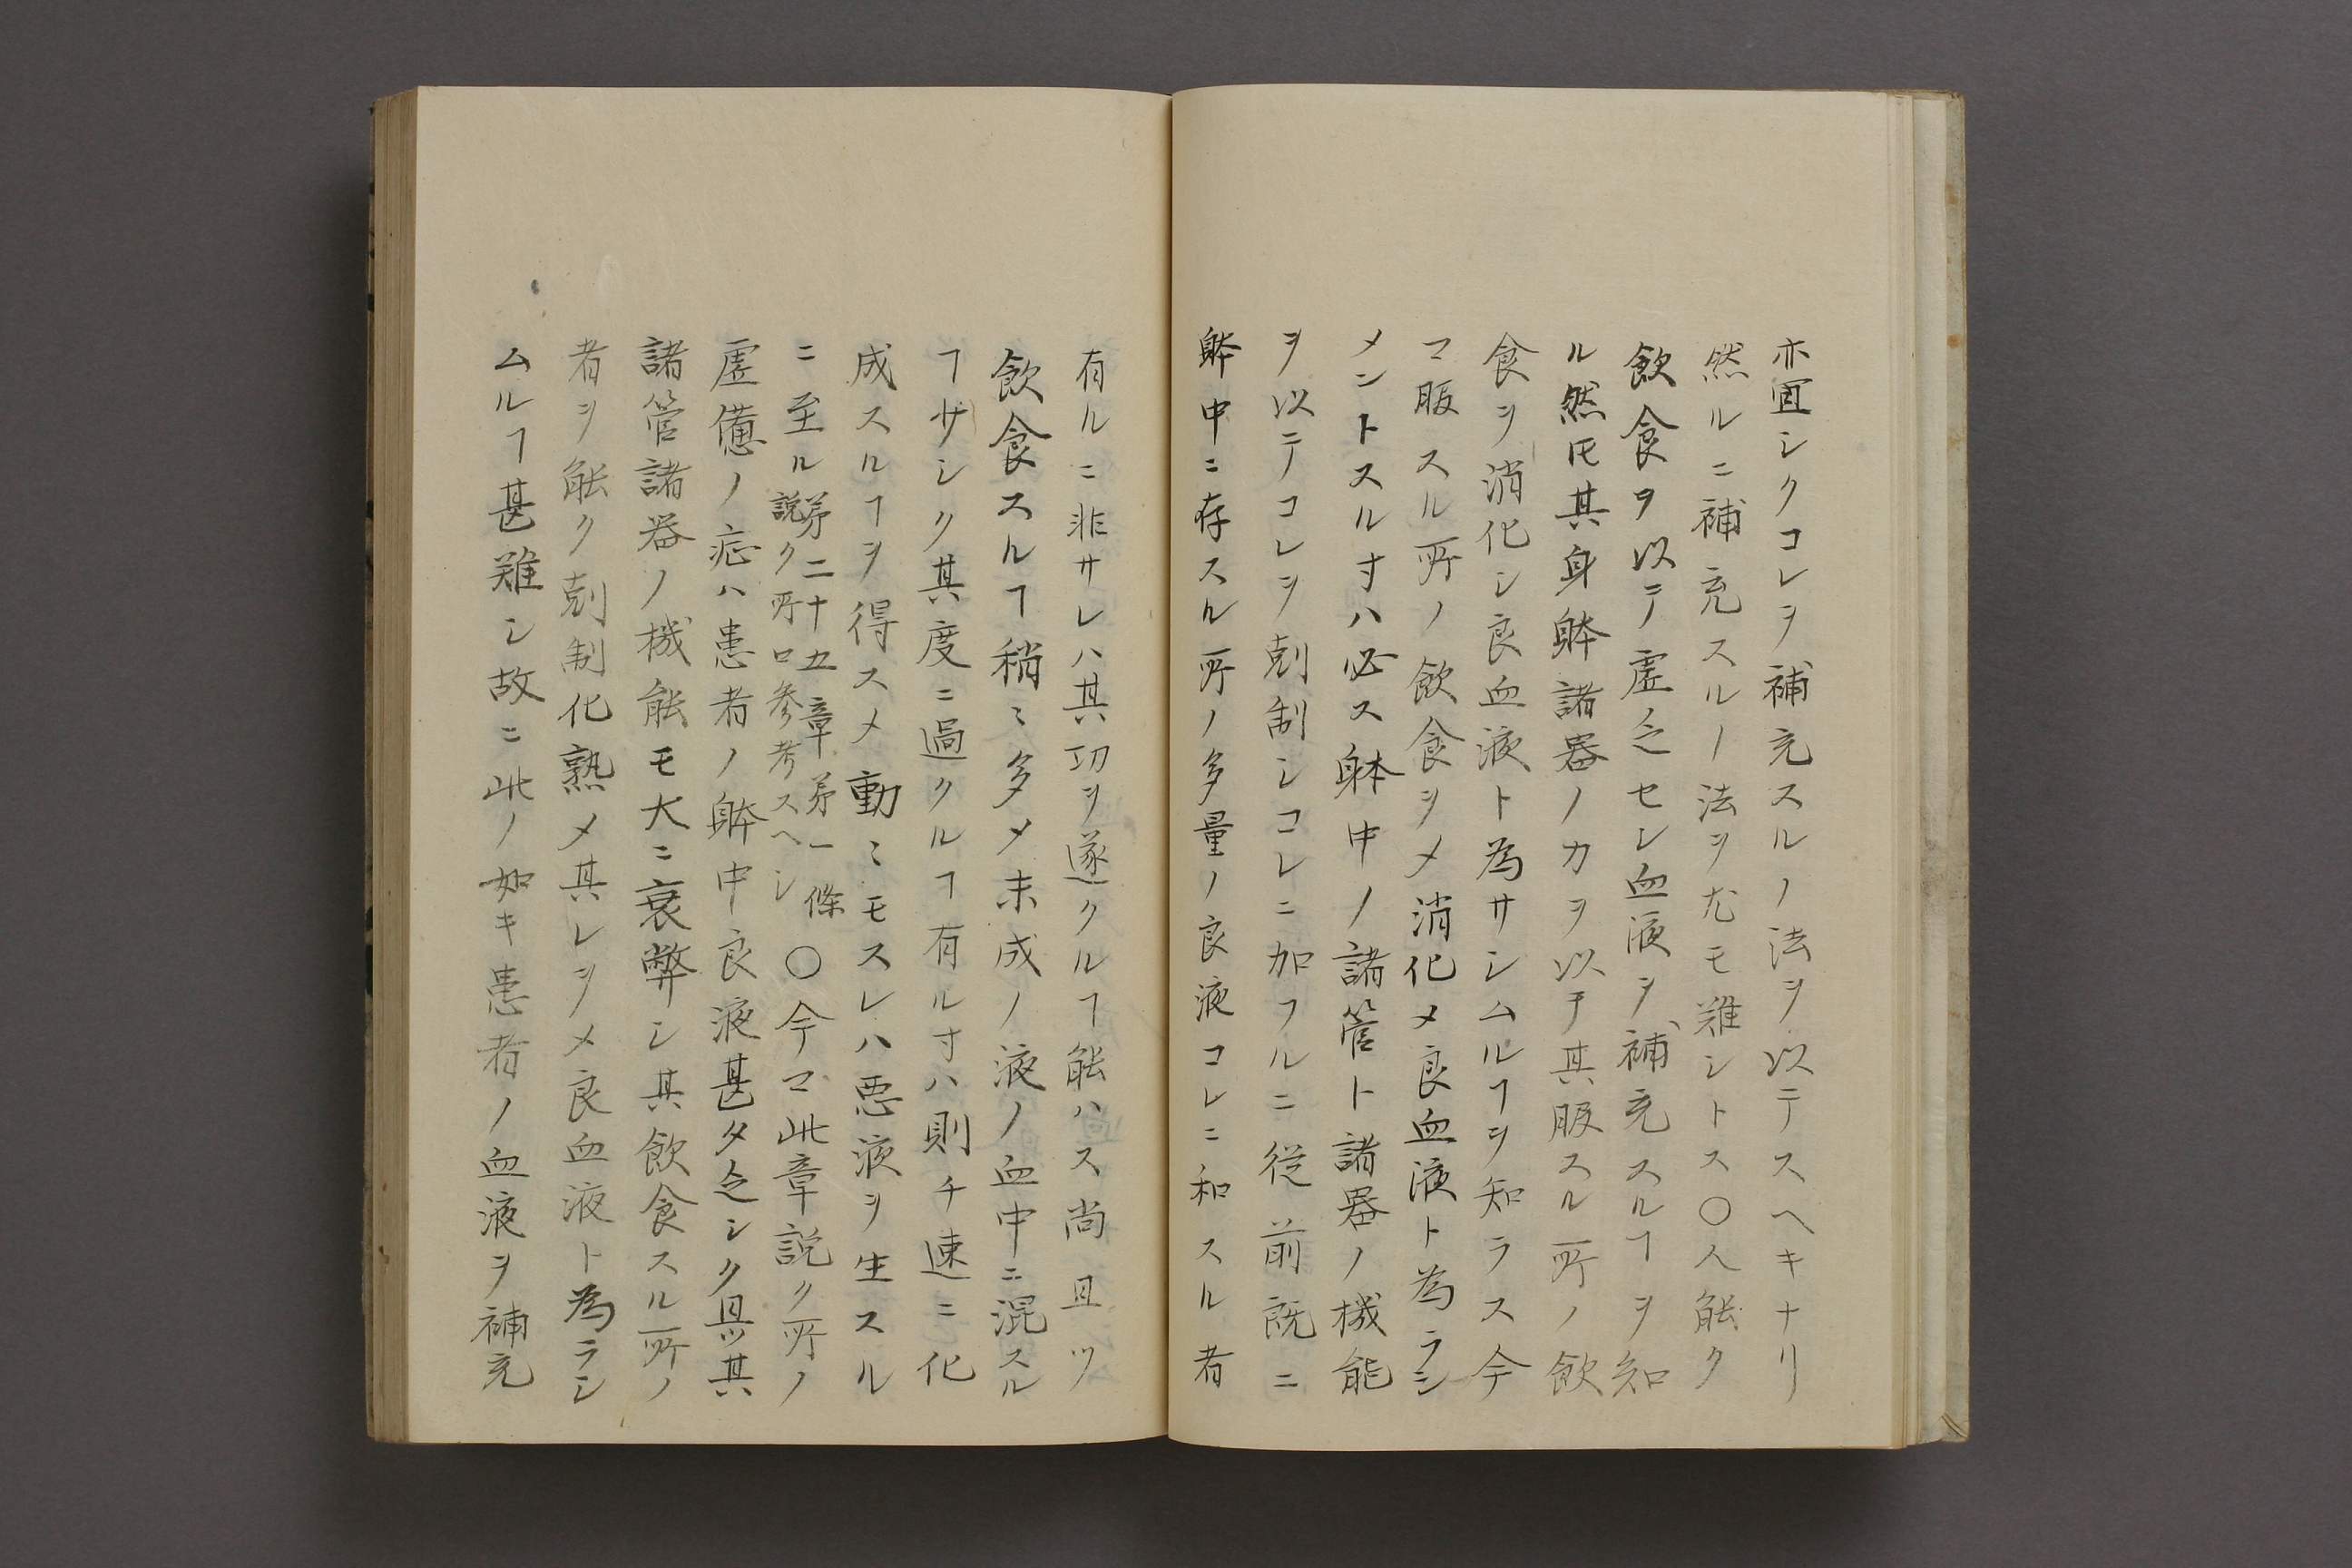 亦宜シクコレヲ補充スルノ法ヲ以テスヘキナリ
然ルニ補充スルノ法ヲ尤モ難シトス〇人能ク
飲食ヲ以テ虚乏セシ血液ヲ補充スルヿヲ知
ル然𪜈其身躰諸器ノ力ヲ以テ其服スル所ノ飲
食ヲ消化シ良血液ト為サシムルヿヲ知ラス今
マ服スル所ノ飲食ヲメ消化メ良血液ト為ラシ
メントスル寸ハ必ス躰中ノ諸管ト諸器ノ機能
ヲ以テコレヲ剋制シコレニ加フルニ従前既ニ
躰中ニ存スル所ノ多量ノ良液コレニ和スル者
有ルニ非サレハ其功ヲ遂クルヿ能ハス尚且ツ
飲食スルヿ稍〻多メ未成ノ液ノ血中ニ混スル
ヿ久シク其度ニ過クルヿ有ル寸ハ則チ速ニ化
成スルヿヲ得スメ動〻モスレハ悪液ヲ生スル
ニ至ル
第二十五章第一條
説ク所ロ参考スヘシ
〇今マ此章説ク所ノ
虚憊ノ症ハ患者ノ躰中良液甚タ乏シク且ツ其
諸管諸器ノ機能モ大ニ衰弊シ其飲食スル所ノ
者ヲ能ク剋制化熟メ其レヲメ良血液ト為ラシ
ムルヿ甚難シ故ニ此ノ如キ患者ノ血液ヲ補充